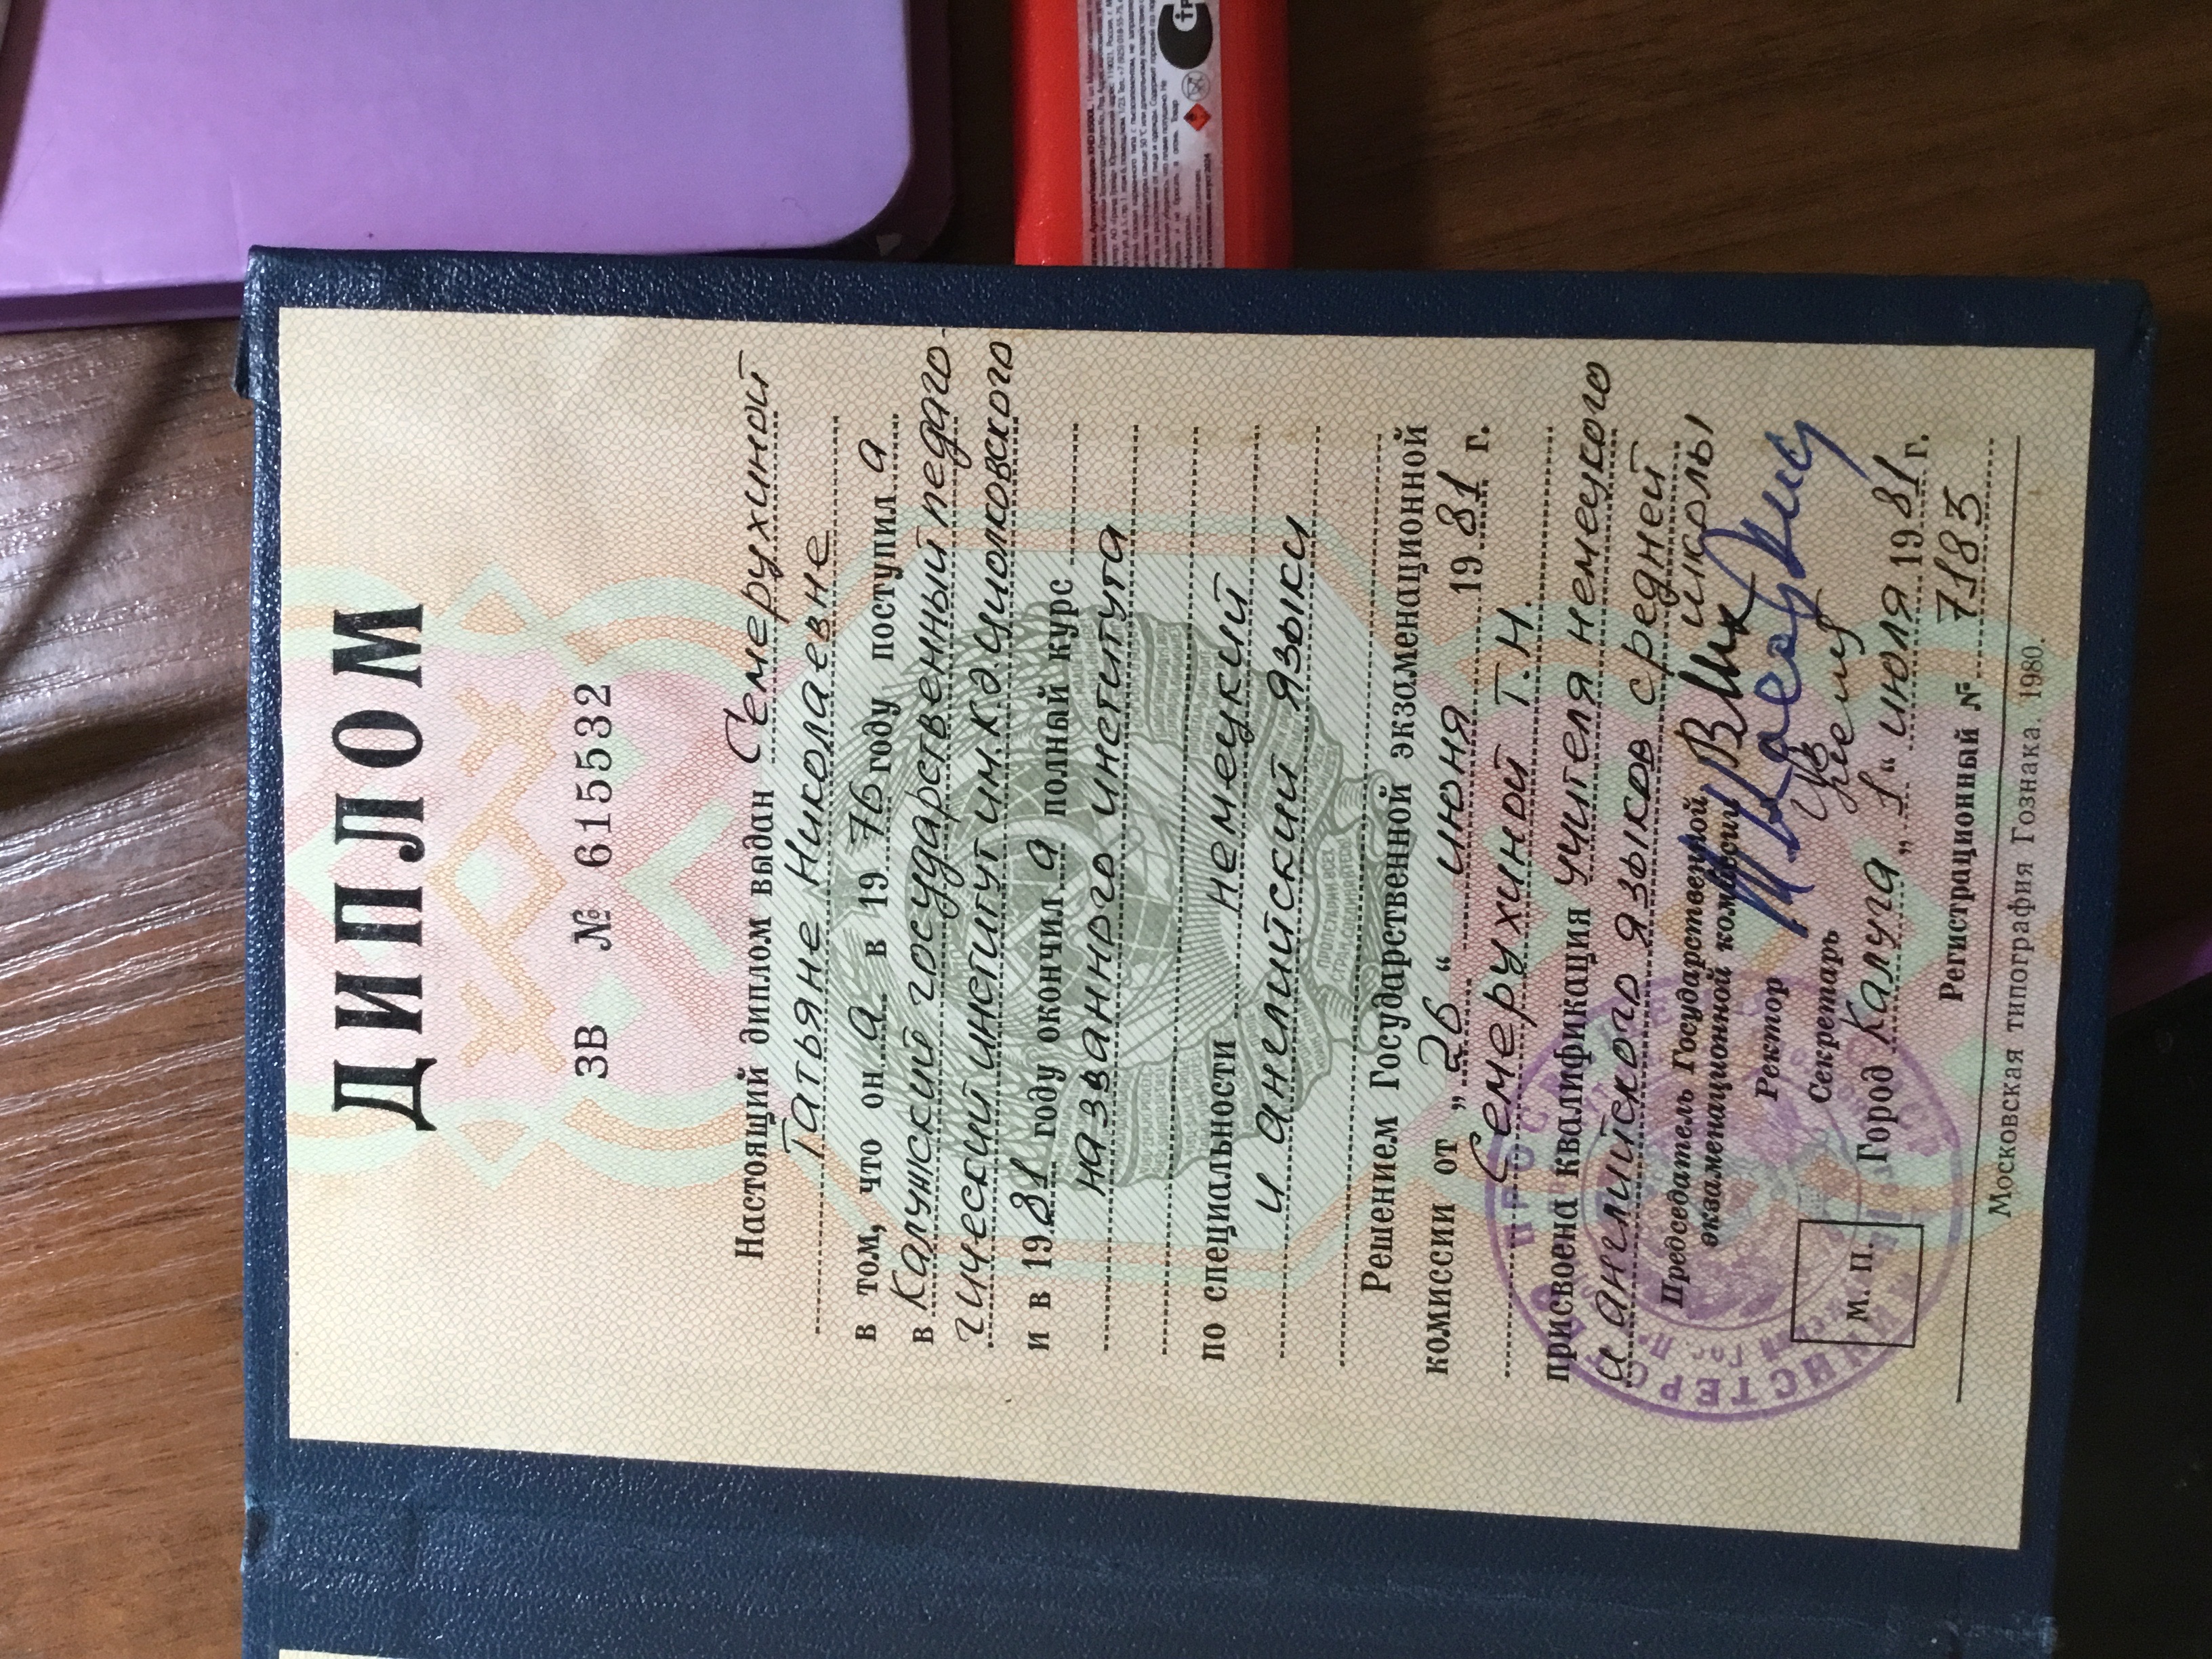 ДИПЛОМ
ЗВ № 615532
Настоящий диплом выдан Семерухиной
Татьяне Николаевне
в том, что он а в 1976 году поступил а
в Калужский государственный педаго-
гический институт им.К.Э.Циолковского
и в 1981 году окончил а полный курс
названного института
по специальности немецкий
и английский языки
Решением Государственной экзаменационной
комиссии от „ 26 “ июня 1981 г.
Семерухиной Т.Н.
присвоена квалификация учителя немецкого
и английского языков средней
школы
Председатель Государственной
экзаменационной комиссии
Ректор
Секретарь
М. П.
Город Калуга „ 1 “ июля 1981 г.
Регистрационный № 7183
Московская типография Гознака. 1980.